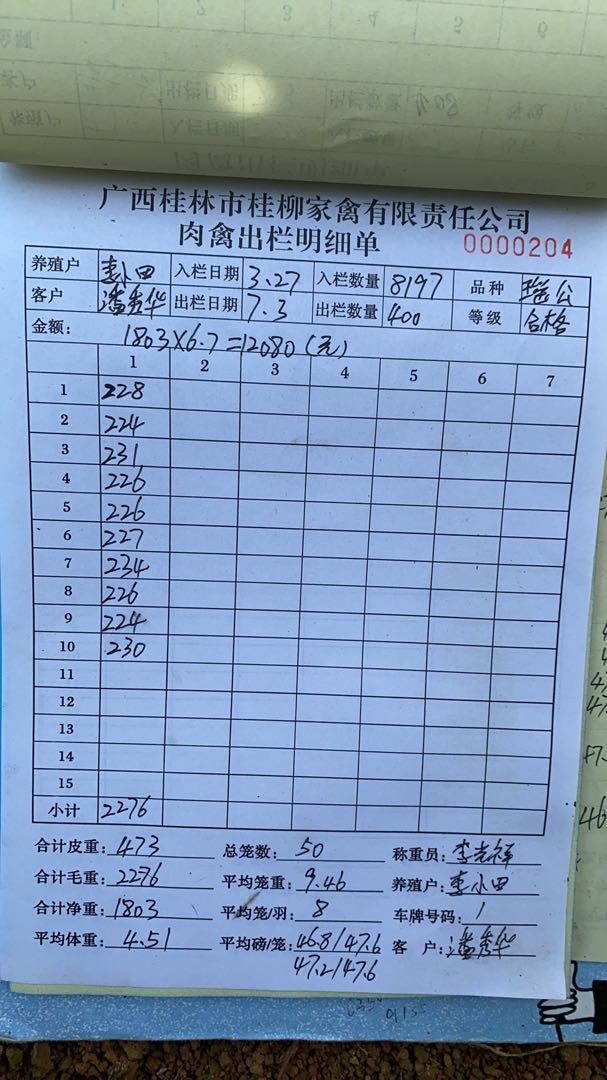 广西桂林市桂柳家禽有限责任公司
肉禽出栏明细单 0000204
养殖户 李小田 入栏日期 3.27 入栏数量 8197 品种 瑶公
客户 潘秀华 出栏日期 7.3 出栏数量 400 等级 合格
金额: 1803×6.7=12080(元)
1 2 3 4 5 6 7
1 228
2 224
3 231
4 226
5 226
6 227
7 234
8 226
9 224
10 230
11
12
13
14
15
小计 2276
合计皮重: 473 总笼数: 50 称重员: 李光祥
合计毛重: 2276 平均笼重: 9.46 养殖户: 李小田
合计净重: 1803 平均笼/羽: 8 车牌号码: 1
平均体重: 4.51 平均磅/笼: 46.8/47.6 客户: 潘秀华
47.2/47.6